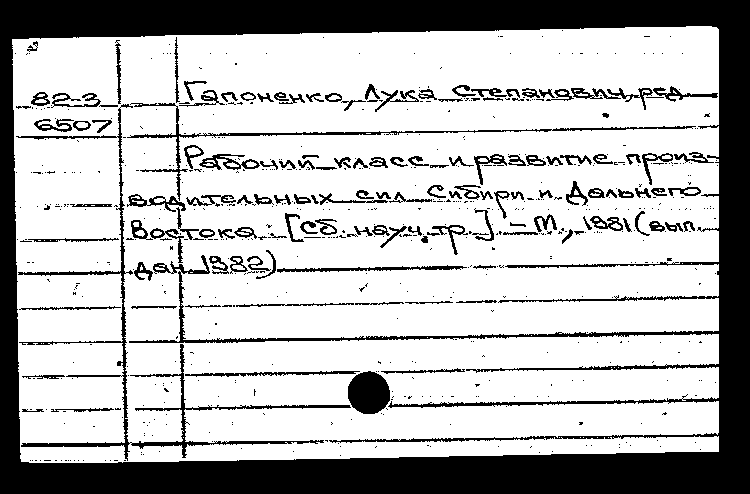 82-3 Гапоненко, Лука Степанович, ред.
6507
Рабочий класс и развитие произ-
водительных сил Сибири и Дальнего
Востока : [Сб. науч. тр.] – М., 1981 (вып.
дан. 1982)